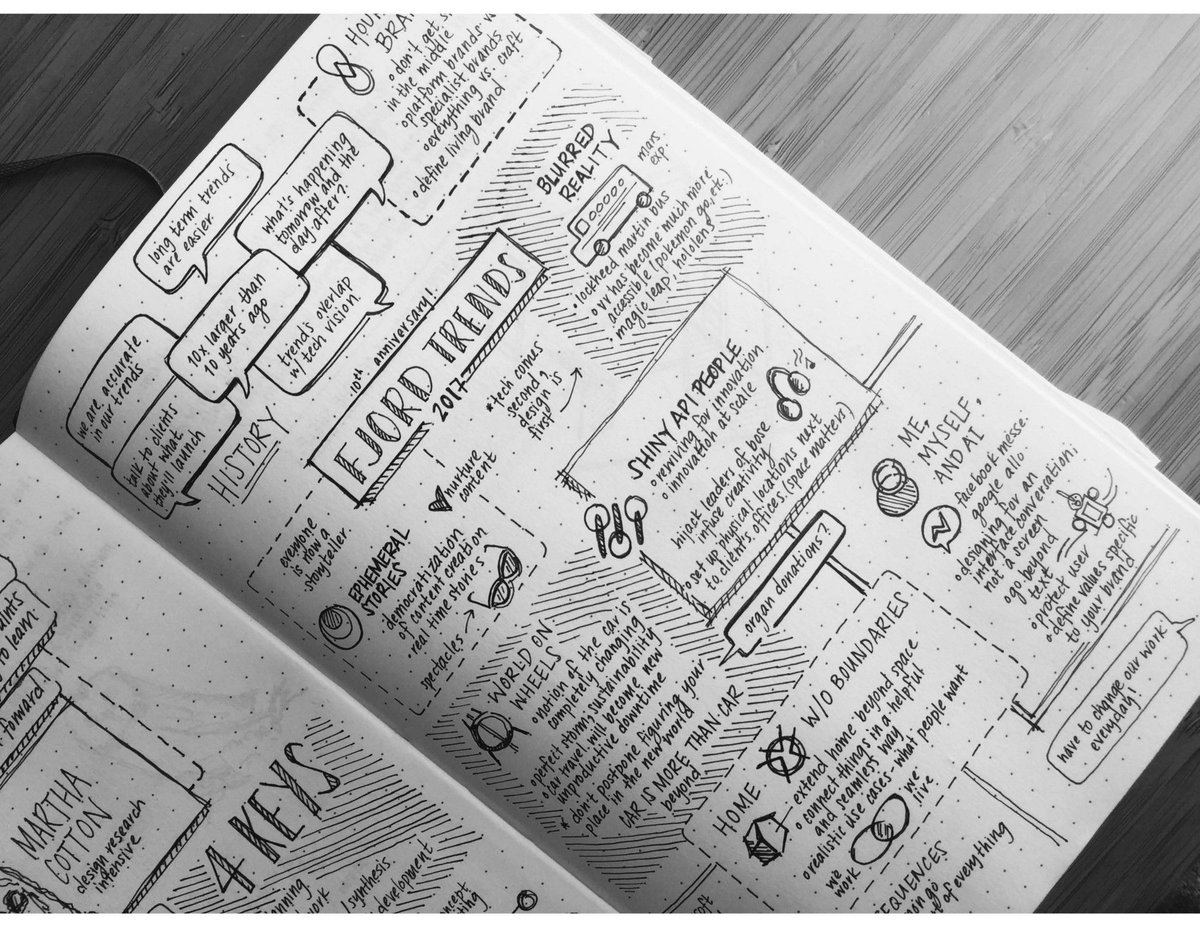 don't get s
in the middle
platform brands v
specialist brands
everything vs. craft
define living brand
long term trends
are easier
what's happening
tomorrow and the
day after?
10x larger than
10 years ago
trends overlap
w/tech vision
we are accurate
in our trends
talk to clients
about what
they'll launch
HISTORY
10th anniversary!
FJORD TRENDS
2017
*tech comes
second?
design is
first
BLURRED
REALITY
mars
exp.
lockheed martin bus
vr has become much more
accessible (pokemon go, etc.)
magic leap, hololens
SHINY API PEOPLE
reming for innovation
innovation at scale
hijack leaders of base
infuse creativity
set up physical locations next
to client's offices. (space matters)
ME,
MYSELF,
AND AI
facebook messe.
google allo
designing for an
interface/conversation;
not a screen
go beyond
text
protect user
define values specific
to your brand
everyone
is now a
storyteller
nurture
content
EPHEMERAL
STORIES
democratization
of content creation
real time stories
spectacles
WORLD ON
WHEELS
notion of the car is
completely changing
perfect storm; sustainability
car travel will become new
unproductive downtime
* don't postpone figuring your
place in the new world
CAR IS MORE THAN CAR
beyond.
organ donations?
HOME W/O BOUNDARIES
extend home beyond space
connect things in a helpful
and seamless way
realistic use cases - what people want
we
work
we
live
have to change our work
everyday!
SEQUENCES
of everything
to learn
forward
MARTHA
COTTON
design research
intensive
4 KEYS
synthesis
development